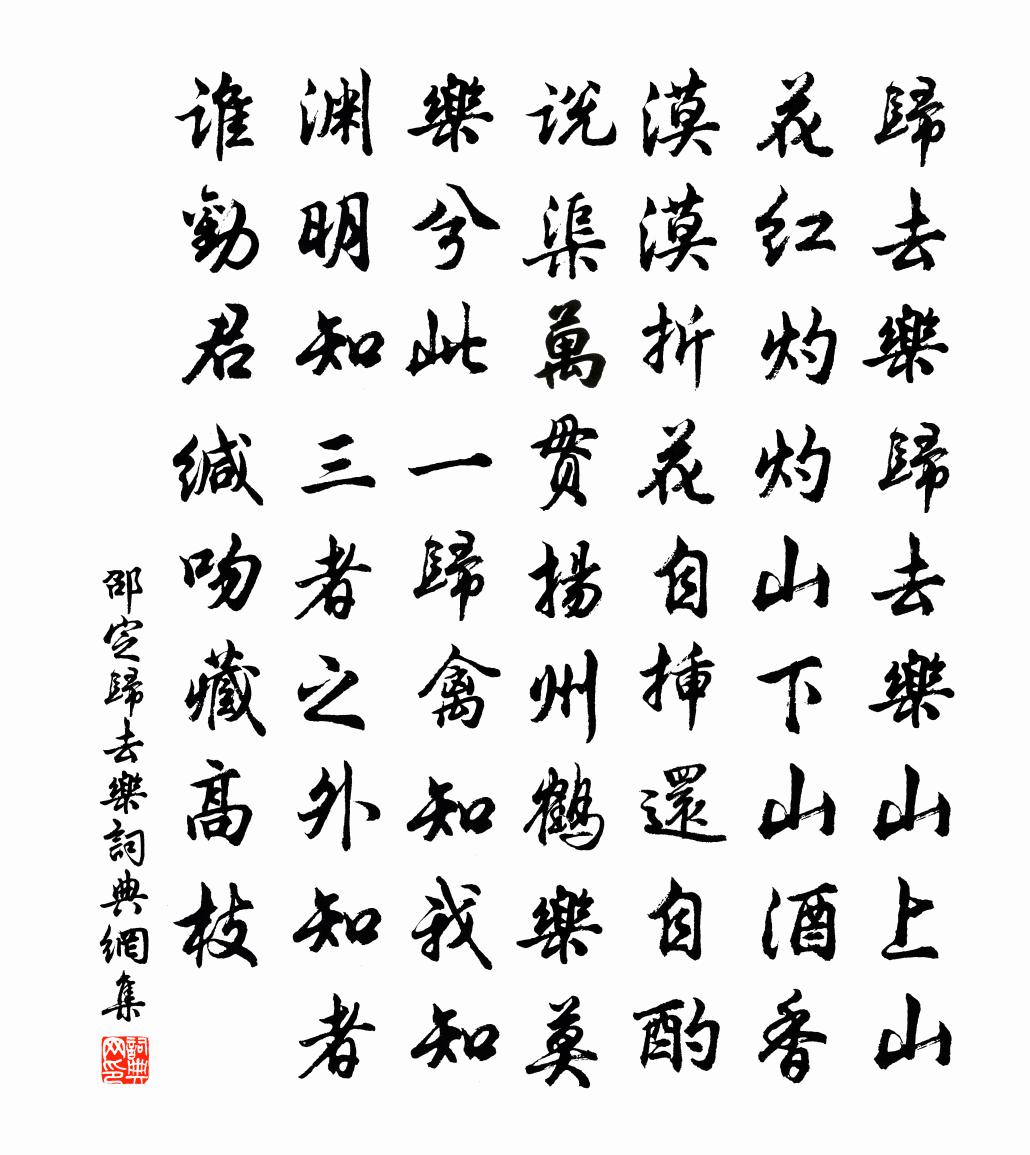 歸去樂歸去樂山上山
花紅灼灼山下山酒香
漠漠折花自挿還自酌
説渠萬貫揚州鶴樂莫
樂兮此一歸禽知我知
淵明知三者之外知者
誰勸君緘吻藏高枝
邵定歸去樂詞典網集
詞典网印